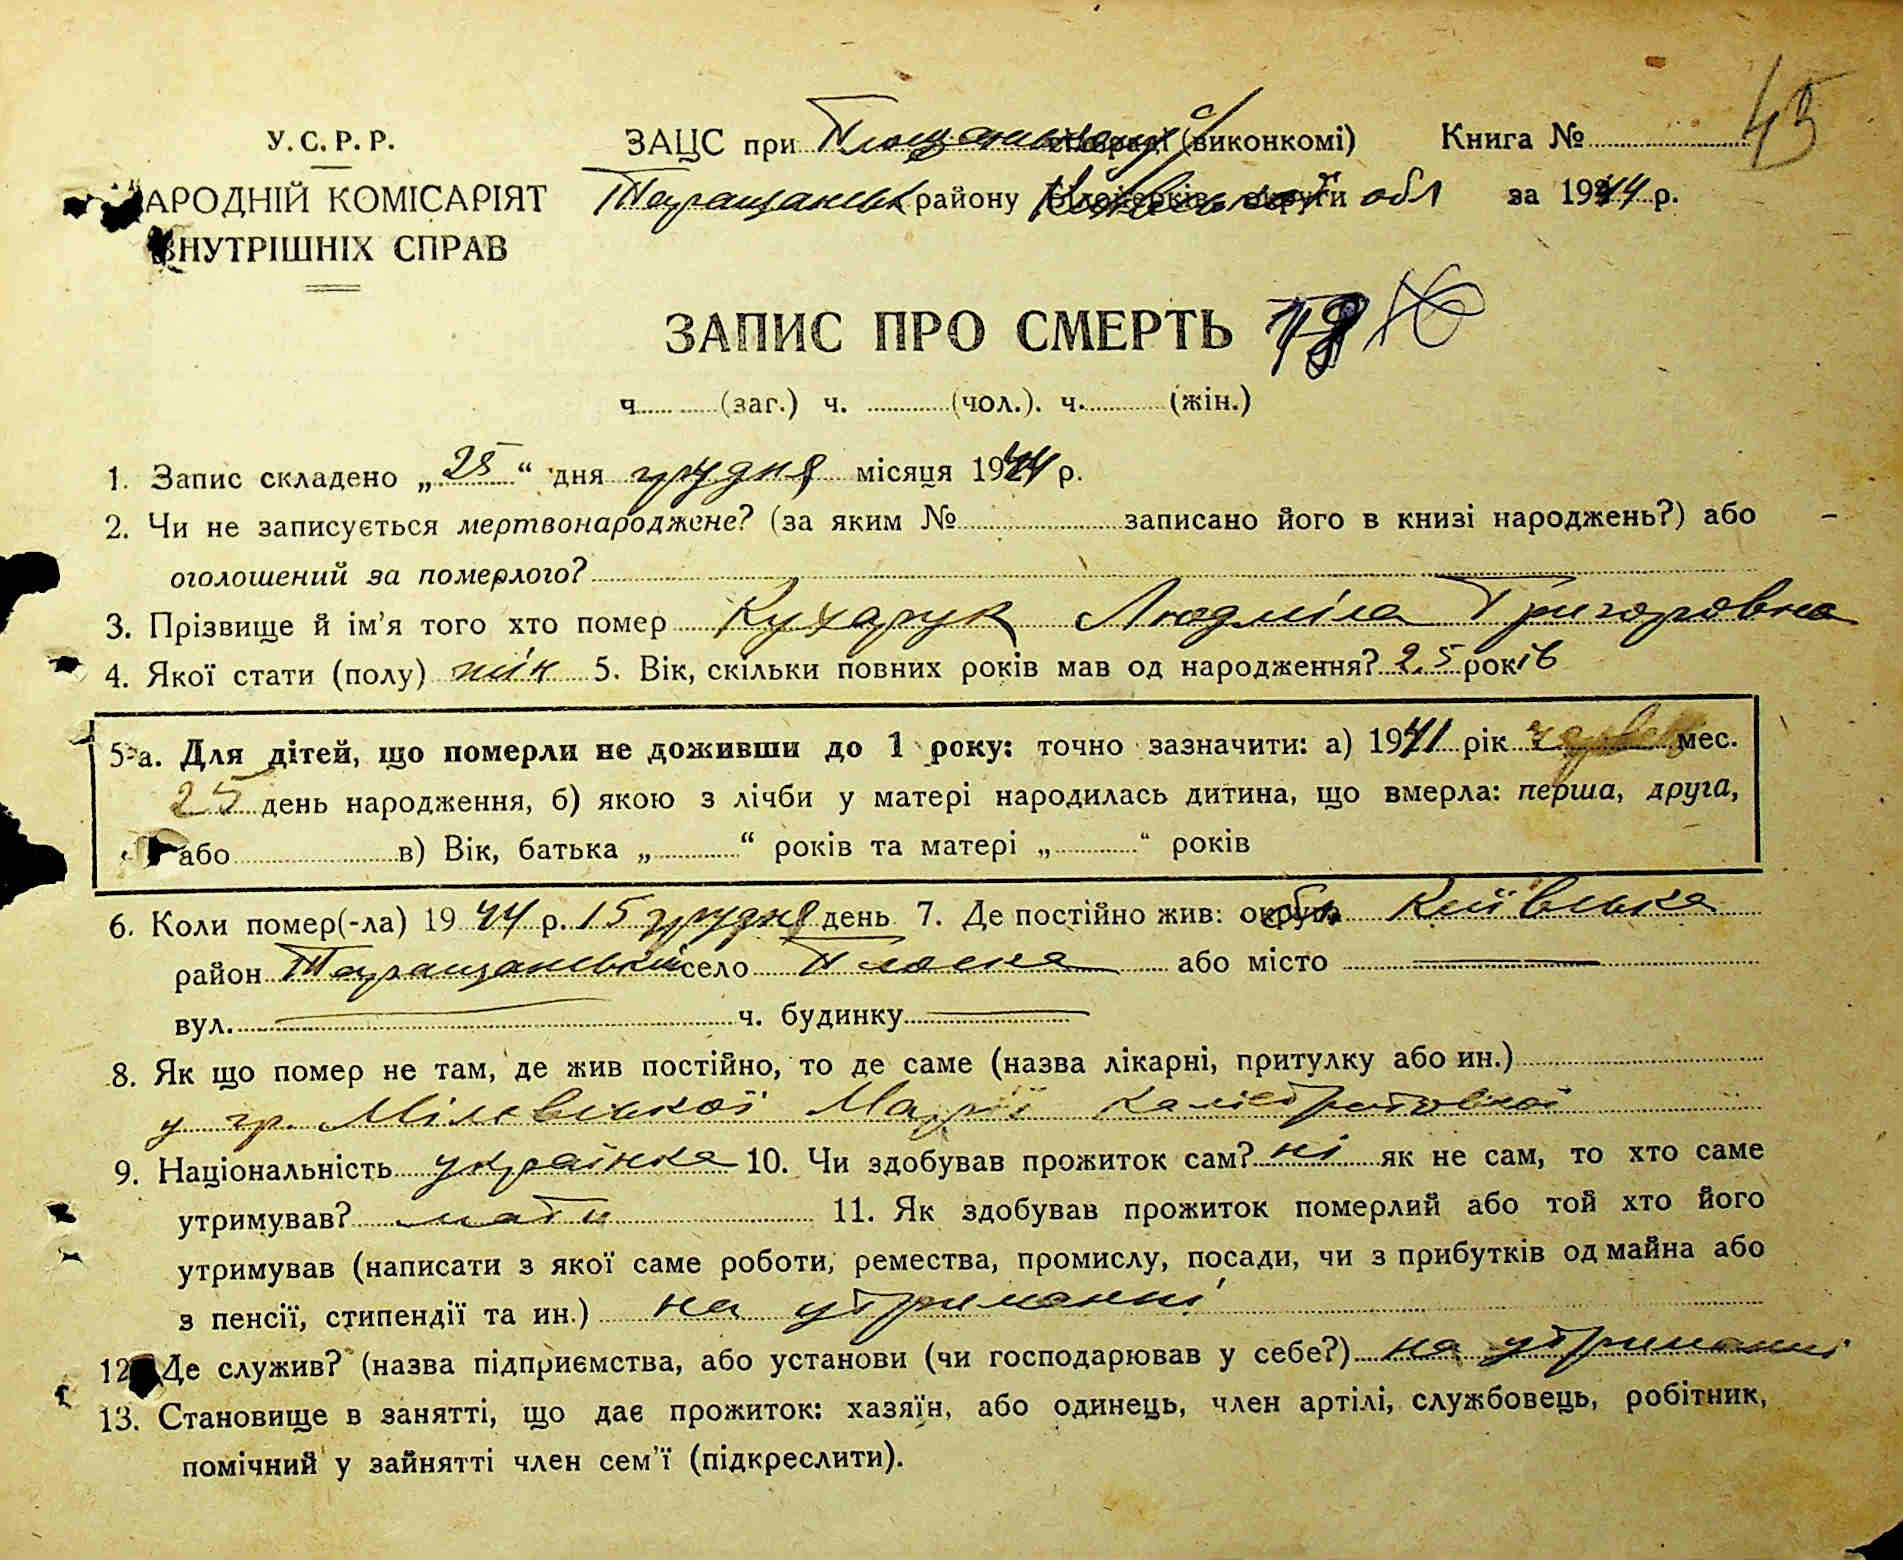 45
У.С.Р.Р.
НАРОДНІЙ КОМІСАРІЯТ
ВНУТРІШНІХ СПРАВ
ЗАЦС при с/сільраді (виконкомі) Книга №
Таращанськ району Київської округи обл за 1944 р.
ЗАПИС ПРО СМЕРТЬ 78
ч. (заг.) ч. (чол.). ч. (жін.)
1. Запис складено „25“ дня грудня місяця 1944 р.
2. Чи не записується мертвонароджене? (за яким № записано його в книзі народжень?) або
оголошений за померлого?
3. Прізвище й ім'я того хто помер Кухарук Людміла Григоровна
4. Якої стати (полу) жін 5. Вік, скільки повних років мав од народження? 2.5 років
5-а. Для дітей, що померли не доживши до 1 року: точно зазначити: а) 1941 рік червень мес.
25 день народження, б) якою з лічби у матері народилась дитина, що вмерла: перша, друга,
або в) Вік, батька „ “ років та матері „ “ років
6. Коли помер(-ла) 1944 р. 15 грудня день 7. Де постійно жив: округа обл Київська
район Таращанський село Плоске або місто —
вул. — ч. будинку —
8. Як що помер не там, де жив постійно, то де саме (назва лікарні, притулку або ин.)
у гр. Мілевської Марії
9. Національність українка 10. Чи здобував прожиток сам? ні як не сам, то хто саме
утримував? мати 11. Як здобував прожиток померлий або той хто його
утримував (написати з якої саме роботи, ремества, промислу, посади, чи з прибутків од майна або
з пенсії, стипендії та ин.) на утриманні
12. Де служив? (назва підприємства, або установи (чи господарював у себе?) на утриманні
13. Становище в занятті, що дає прожиток: хазяїн, або одинець, член артілі, службовець, робітник,
помічний у зайнятті член сем'ї (підкреслити).